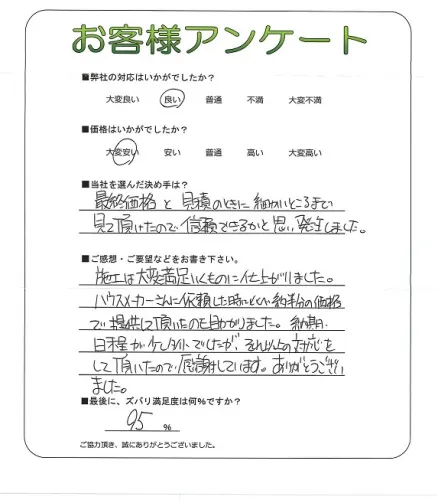 お客様アンケート
■弊社の対応はいかがでしたか?
大変良い 良い 普通 不満 大変不満
■価格はいかがでしたか?
大変安い 安い 普通 高い 大変高い
■当社を選んだ決め手は?
最終価格と見積のときに細かいところまで
見て頂けたので信頼できるかと思い発注しました。
■ご感想・ご要望などをお書き下さい。
施工は大変満足いくものに仕上がりました。
ハウスメーカーさんに依頼した時に比べ約半分の価格
で提供して頂いたのも助かりました。納期
日程が少しタイトでしたが、それ以上の対応を
して頂いたので、感謝しています。ありがとうござい
ました。
■最後に、ズバリ満足度は何%ですか?
95 %
ご協力頂き、誠にありがとうございました。